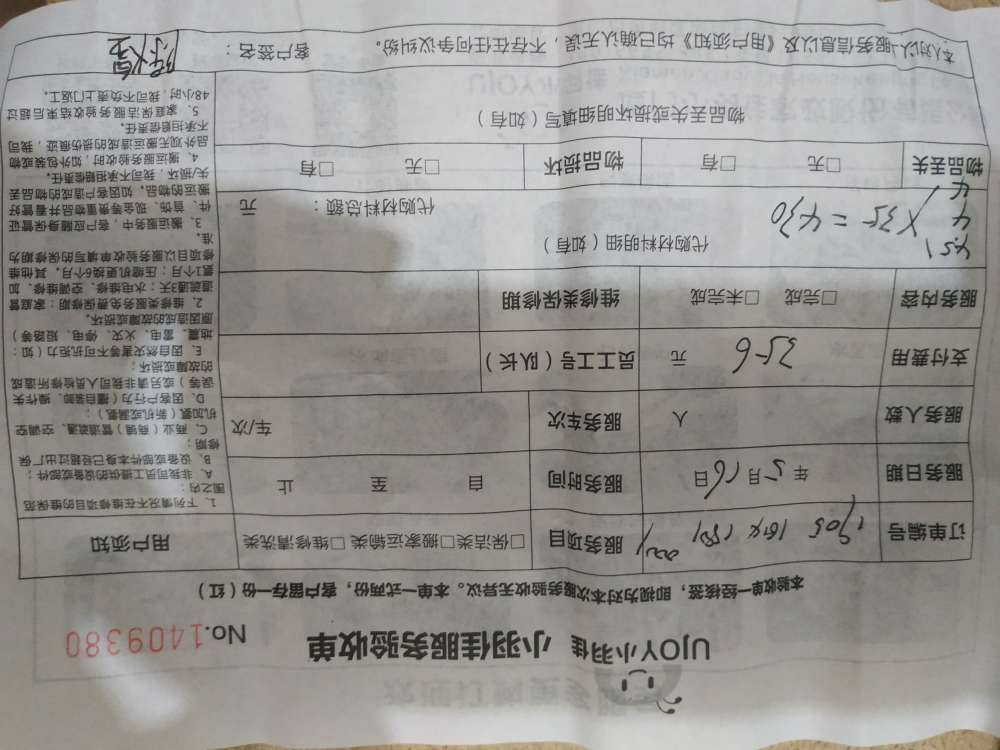 UJOY小羽佳 小羽佳服务验收单 No.1409380
本验收单一经核签，即视为对本次服务验收无异议。本单一式两份，客户留存一份（红）
订单编号 服务项目 □保洁类 □搬家运输类 □维修清洗类
服务日期 年5月16日 服务时间 自 至 止
服务人数 人 服务车次 车/次
支付费用 356 元 员工工号（队长）
服务内容 □完成 □未完成 维修类保修期
代购材料明细（如有） 代购材料总额： 元
451
4
4
X35=430
物品丢失 □无 □有 物品损坏 □无 □有
物品丢失或损坏明细填写（如有）
用户须知
1. 下列情况不在维修项目的维保范
围之内：
A. 非我司员工提供的设备或部件；
B. 设备或部件本身已经超过出厂保
修期；
C. 商业（商铺）管道疏通、空调
机加氟（新机或漏氟）；
D. 因客户行为（擅自装卸、操作失
误等）或另请非我司人员检修所造成
的故障或损坏；
E. 因自然灾害等不可抗力（如：
地震、雷电、火灾、停电、短路等）
原因造成的故障或损坏。
2. 维修类服务免费保修期：家庭管
道疏通3天；水电维修、空调维修、加
氟1个月；压缩机更换6个月。其他维
修项目以服务验收单填写的保修期为
准。
3. 搬运服务中，客户应随身保管证
件、首饰、现金等贵重物品并看管好
搬运的物品。如因客户造成的物品丢
失/损坏，我司不承担赔偿责任。
4. 搬运服务验收时，如外包装或物
品外观无搬运造成的损伤痕迹，我司
不承担赔偿责任。
5. 家庭保洁服务验收结束后超过
48小时，我司不负责上门返工。
本人对以上服务信息以及《用户须知》均已确认无误，不存在任何争议纠纷。 客户签名：